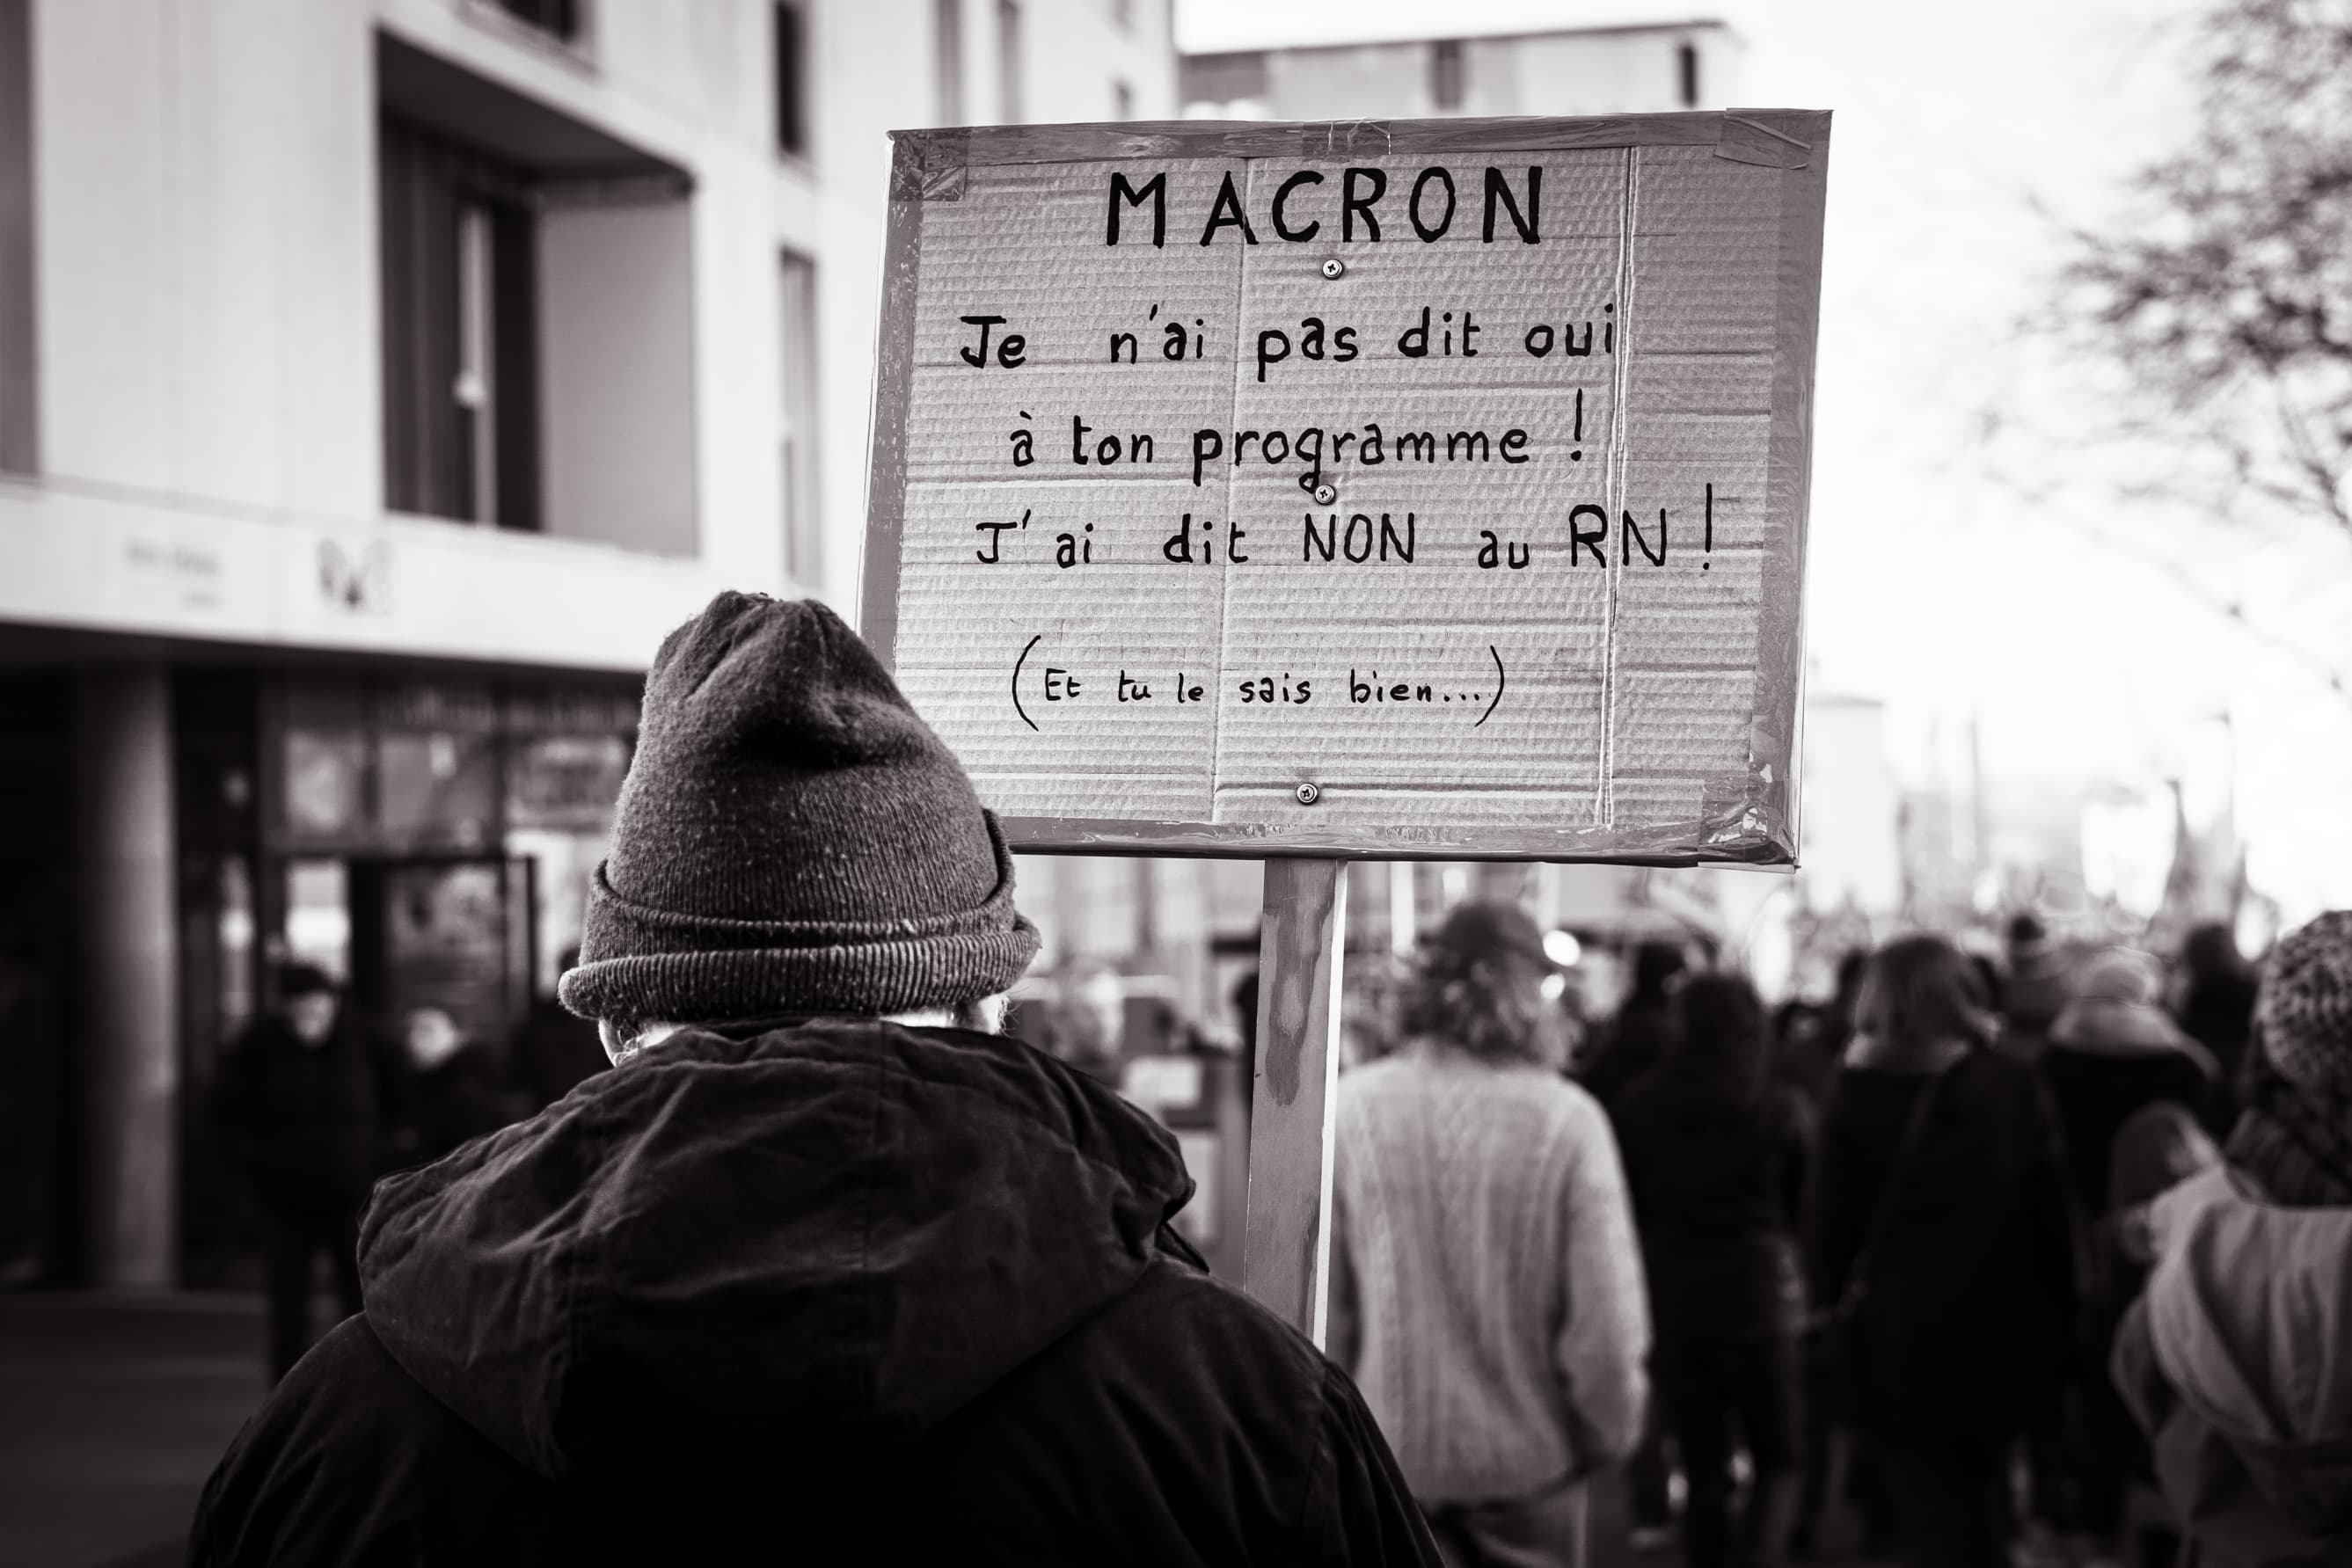 MACRON
Je n'ai pas dit oui
à ton programme !
J'ai dit NON au RN !
(Et tu le sais bien...)